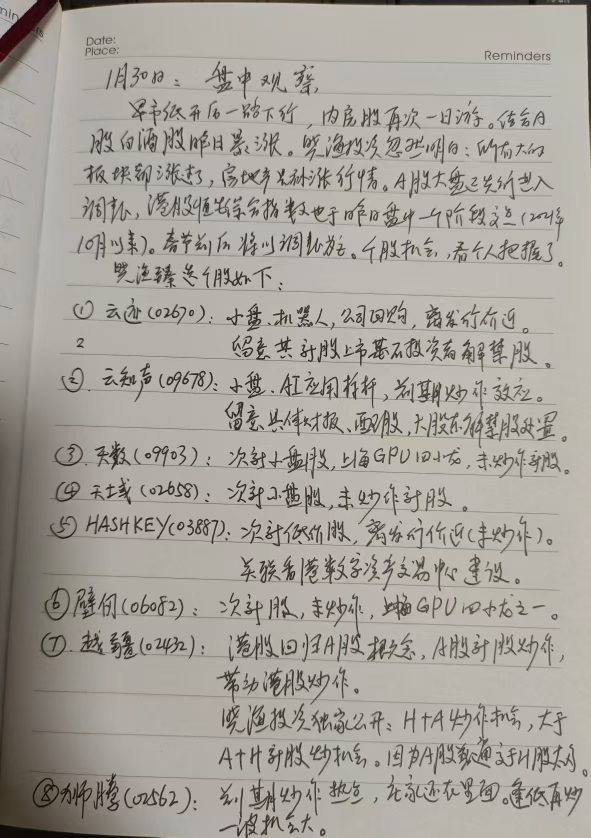 Date:
Place:
Reminders
1月30日: 盘中观察
早市低开后一路下行,内房股再次一日游。结合A
股白酒股昨日暴涨。晓渔投资忽然明白:所有大的
板块都涨过了,房地产只补涨行情。A股大盘已先行进入
调整,港股恒生综合指数也于昨日盘中一个阶段高点(2021年
10月以来)。春节前后将以调整为主。个股机会,看个人把握了。
晓渔臻选个股如下:
① 云迹(02670): 小盘、机器人,公司回购,离发行价近。
2 留意其新股上市基石投资者解禁股。
② 云知声(09678): 小盘、AI应用标杆,前期炒作效应。
留意具体财报、配股,大股东解禁股处置。
③. 天数(09903): 次新小盘股,上海GPU四小龙,未炒作新股。
④ 天域(02658): 次新小盘股,未炒作新股。
⑤ HASHKEY(03887): 次新低价股,离发行价近(未炒作)。
关联香港数字资产交易中心建设。
⑥ 壁仞(06082): 次新股,未炒作,上海GPU四小龙之一。
⑦. 越疆(02432): 港股回归A股概念,A股新股炒作,
带动港股炒作。
晓渔投资独家公开: H+A炒作机会,大于
A+H新股炒机会。因为A股普遍高于H股太多。
⑧ 狮腾(02562): 前期炒作热点,庄家还在里面。逢低再炒
一波机会大。